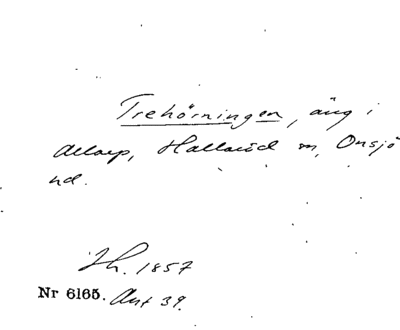 Trehörningen, äng i
Allarp, Hallaröd sn, Onsjö
hd.
Jh. 1857
Nr 6165. Ant 39.